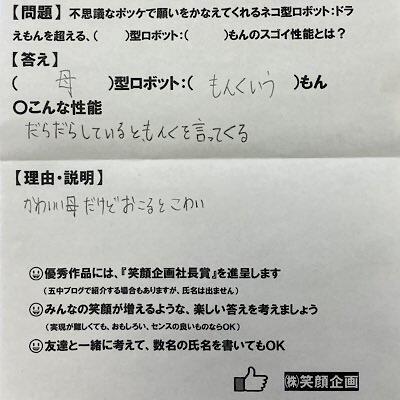 【問題】 不思議なポッケで願いをかなえてくれるネコ型ロボット:ドラ
えもんを超える、( )型ロボット:( )もんのスゴイ性能とは?
【答え】
( 母 )型ロボット:( もんくいう )もん
○こんな性能
だらだらしていると、もんくを言ってくる
【理由・説明】
かわいい母だけどおこるとこわい
優秀作品には、『笑顔企画社長賞』を進呈します
(五中ブログで紹介する場合もありますが、氏名は出ません)
みんなの笑顔が増えるような、楽しい答えを考えましょう
(実現が難しくても、おもしろい、センスの良いものならOK)
友達と一緒に考えて、数名の氏名を書いてもOK
㈱笑顔企画